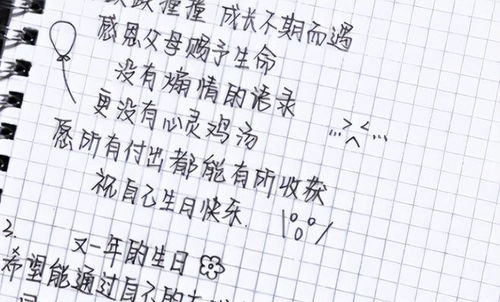 跌跌撞撞 成长不期而遇
感恩父母赐予生命
没有煽情的语录
更没有心灵鸡汤
愿所有付出都能有所收获
祝自己生日快乐.
3.
又一年的生日
希望能通过自己的